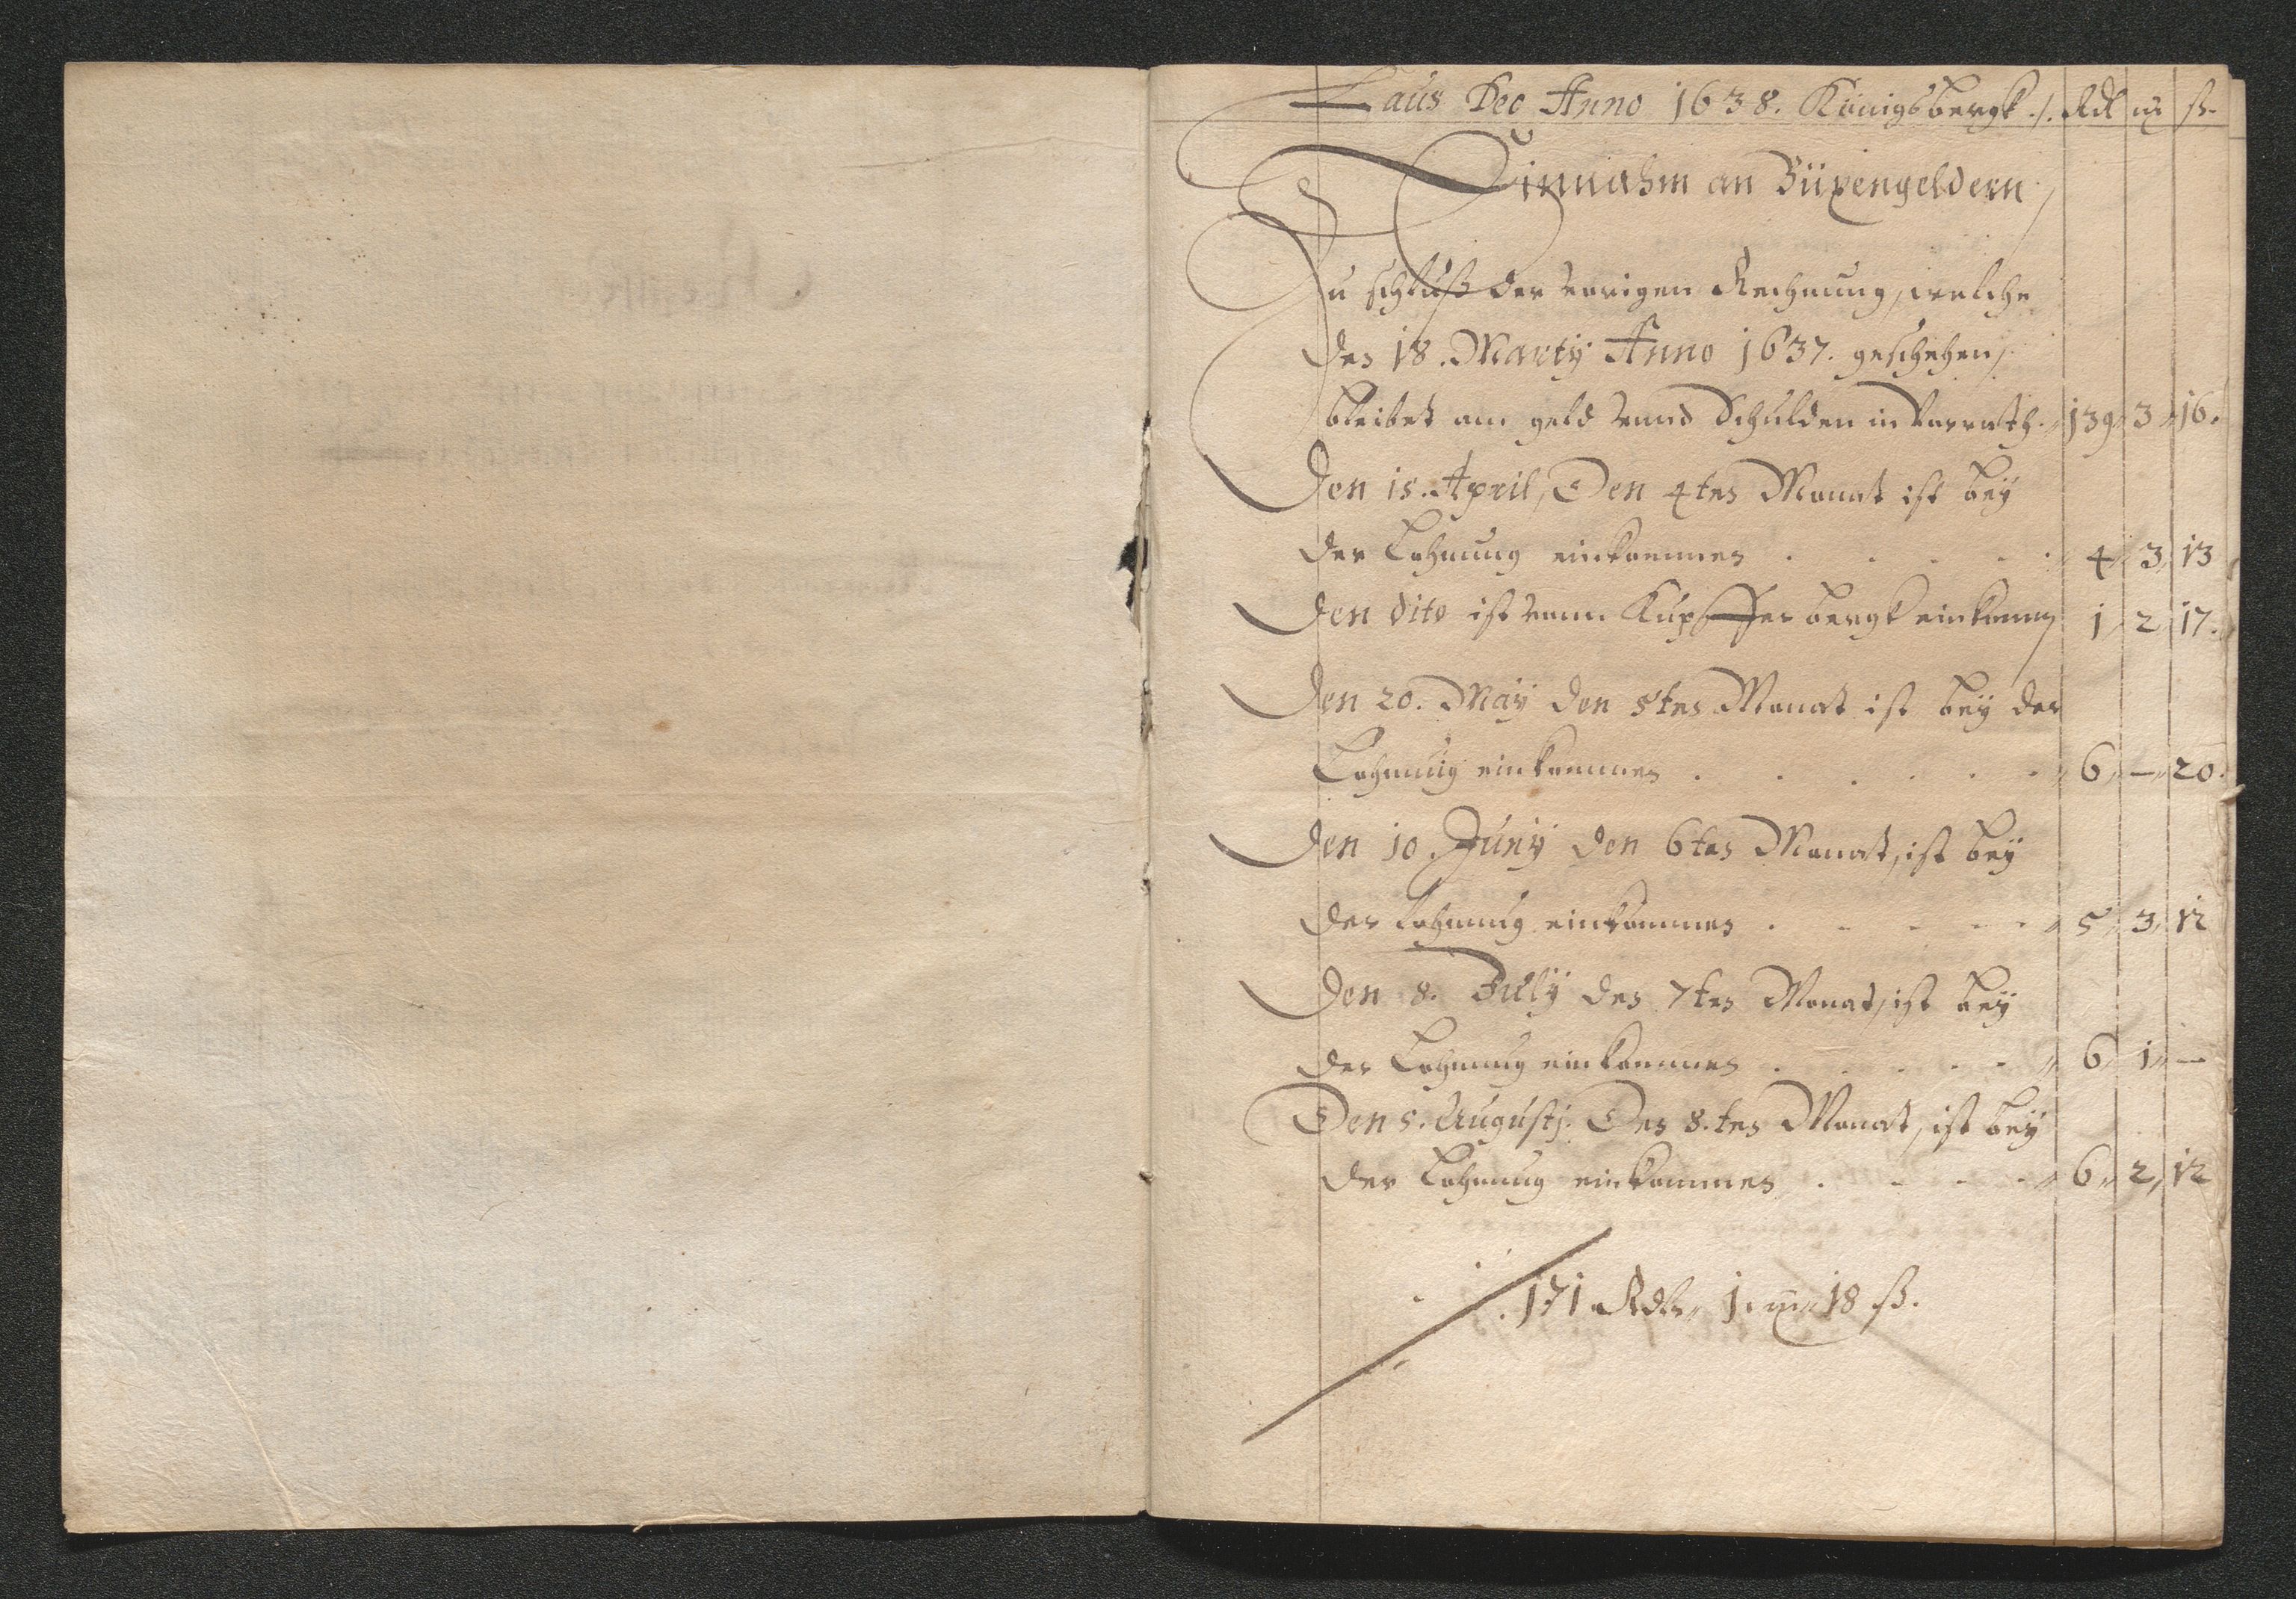 Laus Deo Anno 1638. Königsbergk ./. Rdl mz ß.
Einnahm an Büxengeldern
Zu schluß der vorigen Rechnung, welche
den 18. Marty Anno 1637. geschehen,
bleibet am geld vnnd Schulden in Vorrath. 139 3 16.
Den 15. April, Den 4ten Monat ist beÿ
der Lohnung einkommen . . . . 4 3 13
Den dito ist vom Kupfferbergk einkomm 1 2 17.
Den 20. Maÿ den 5ten Monat ist beÿ der
Lohnung einkommen . . . . . . 6 — 20.
Den 10 Junÿ den 6ten Monat, ist beÿ
der Lohnung einkommen . . . . . 5 3 12
Den 8. Julÿ den 7ten Monat, ist beÿ
der Lohnung einkommen . . . . . 6 1 —
Den 5. Augustj. Den 8.ten Monat, ist beÿ
der Lohnung einkommen . . . . 6 2 12
171 Rdlr 1 m 18 ß.